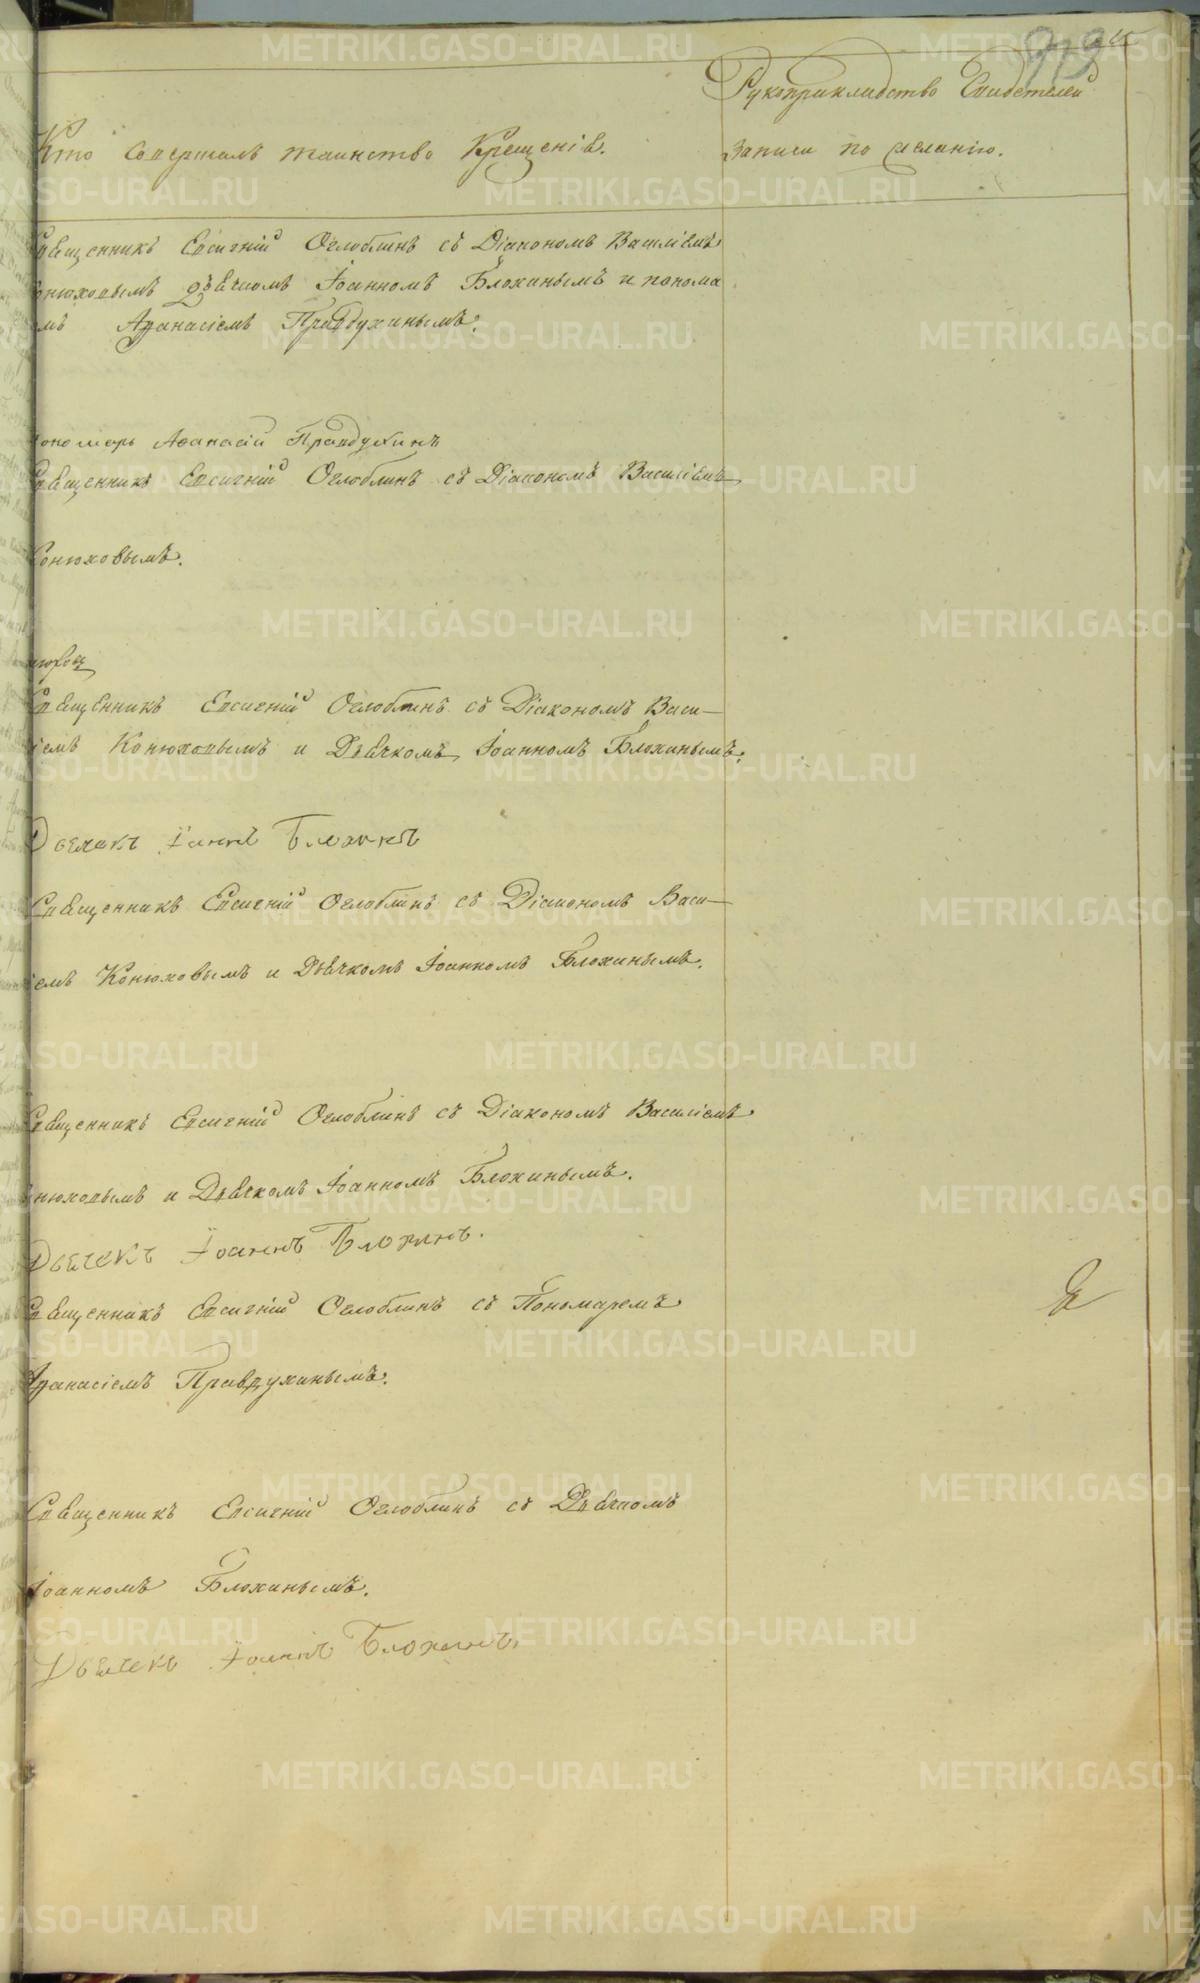 Рукоприкладство Свидетелей
Кто совершалъ таинство Крещенія.
записи по желанію.
Священникъ Евсигній Оглоблинъ съ Діакономъ Василіемъ
Конюховымъ дьячкомъ Іоанномъ Блохинымъ и понома
мъ Афанасіемъ Правдухинымъ.
пономарь Афанасій Правдухинъ
Священникъ Евсигній Оглоблинъ съ Діакономъ Василіемъ
Конюховымъ.
Священникъ Евсигній Оглоблинъ съ Діакономъ Васи-
ліемъ Конюховымъ и Дьячкомъ Іоанномъ Блохинымъ.
Дьячекъ Іоаннъ Блохинъ
Священникъ Евсигній Оглоблинъ съ Діакономъ Васи-
ліемъ Конюховымъ и Дьячкомъ Іоанномъ Блохинымъ.
Священникъ Евсигній Оглоблинъ съ Діакономъ Василіемъ
Конюховымъ и Дьячкомъ Іоанномъ Блохинымъ.
Дьячекъ Іоаннъ Блохинъ.
Священникъ Евсигній Оглоблинъ съ Пономаремъ
Афанасіемъ Правдухинымъ.
Священникъ Евсигній Оглоблинъ съ Дьячкомъ
Іоанномъ Блохинымъ.
Дьячекъ Іоаннъ Блохинъ.
METRIKI.GASO-URAL.RU